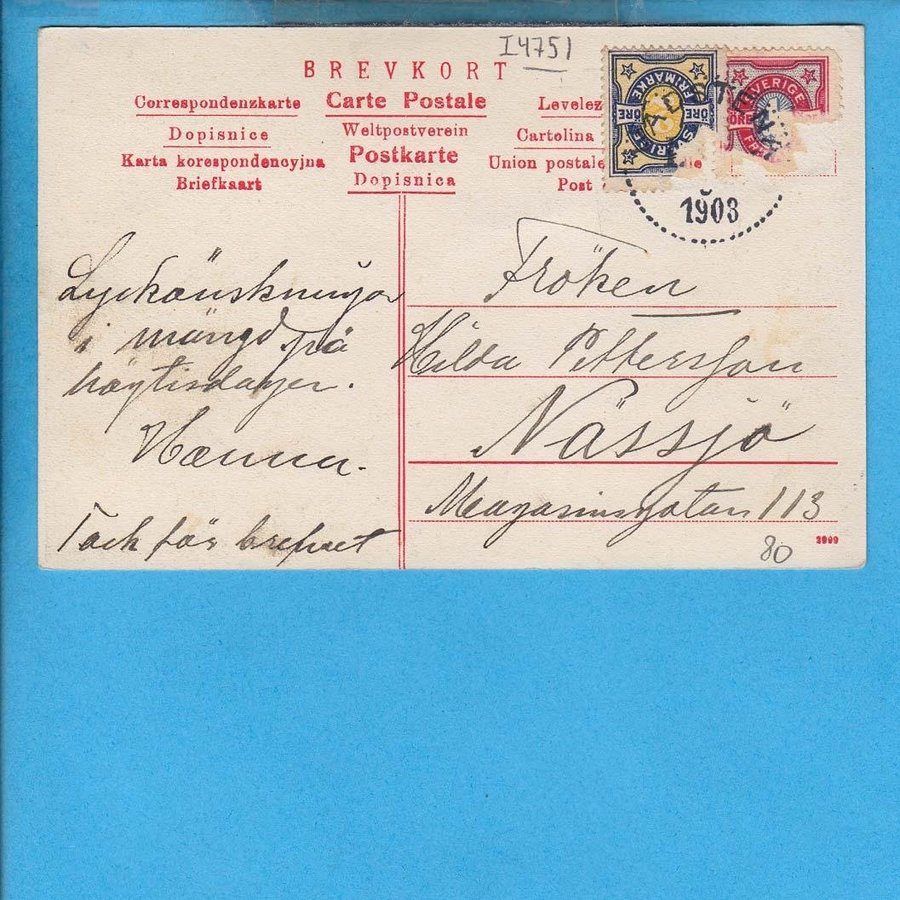 I4751
BREVKORT
Correspondenzkarte
Carte Postale
Levelez
Dopisnice
Weltpostverein
Cartolina
Karta korespondencyjna
Postkarte
Union postale
Briefkaart
Dopisnica
Post
SVERIGE
FRIMÄRKE
ÖRE
ÖRE
SVERIGE
ÖRE
1903
Lyckönskningar
i mängd på
högtisdagen.
Hanna.
Tack för brefvet
Fröken
Hilda Pettersson
Nässjö
Magasinsgatan 113
80
2999